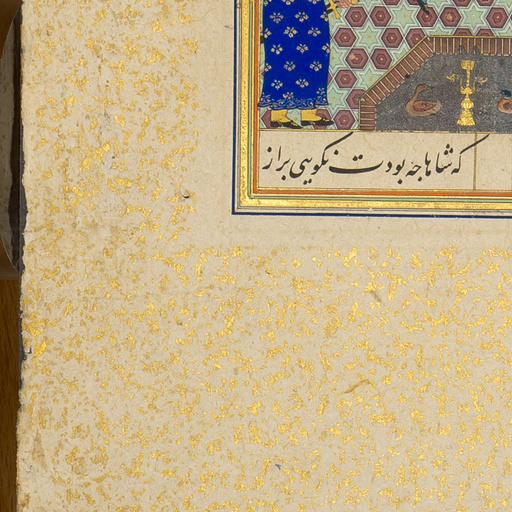 که شاها چه بودت نکویی براز